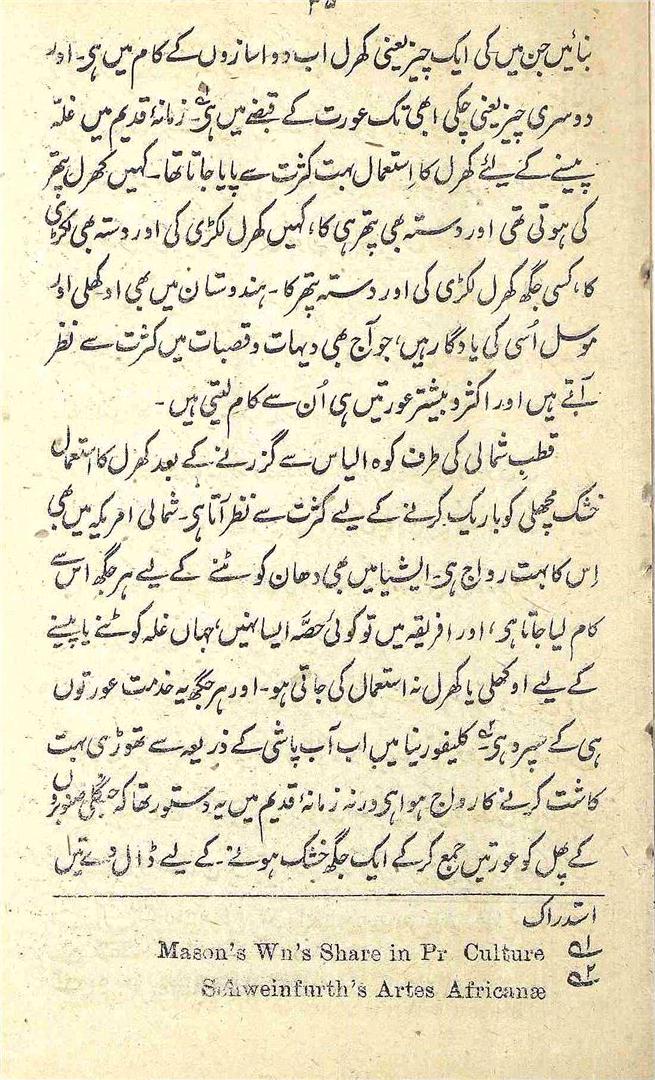 ۳۵
بنائیں جن میں کی ایک چیز یعنی کھرل اب دواسازوں کے کام میں ہی۔ اور
دوسری چیز یعنی چکی ابھی تک عورت کے قبضے میں ہی۔ زمانۂ قدیم میں غلّہ
پیسنے کے لیئے کھرل کا اِستعمال بہت کثرت سے پایا جاتا تھا۔ کہیں کھرل پتھر
کی ہوتی تھی اور دستہ بھی پتھر ہی کا، کہیں کھرل لکڑی کی اور دستہ بھی لکڑی
کا، کسی جگھ کھرل لکڑی کی اور دستہ پتھر کا۔ ہندوستان میں بھی اوکھلی اور
موسل اُسی کی یادگار ہیں، جو آج بھی دیہات و قصبات میں کثرت سے نظر
آتے ہیں اور اکثر و بیشتر عورتیں ہی اُن سے کام لیتی ہیں۔
قطبِ شمالی کی طرف کوہ الیاس سے گزرنے کے بعد کھرل کا استعمال
خشک مچھلی کو باریک کرنے کے لیے کثرت سے نظر آتا ہی۔ شمالی امریکہ میں بھی
اِس کا بہت رواج ہی۔ ایشیا میں بھی دھان کوٹنے کے لیے ہر جگھ اس سے
کام لیا جاتا ہی، اور افریقہ میں تو کوئی حصّہ ایسا نہیں، جہاں غلہ کوٹنے یا پیسنے
کے لیے اوکھلی یا کھرل نہ استعمال کی جاتی ہو۔ اور ہر جگھ یہ خدمت عورتوں
ہی کے سپرد ہی۔ کلیفورنیا میں اب آب پاشی کے ذریعہ سے تھوڑی بہت
کاشت کرنے کا رواج ہوا ہی ورنہ زمانۂ قدیم میں یہ دستور تھا کہ جنگلی صنوبروں
کے پھل کو عورتیں جمع کر کے ایک جگھ خشک ہونے کے لیے ڈال دیتیں
استدراک
۱ Mason's Wn's Share in Pr Culture
۲ Schweinfurth's Artes Africanæ